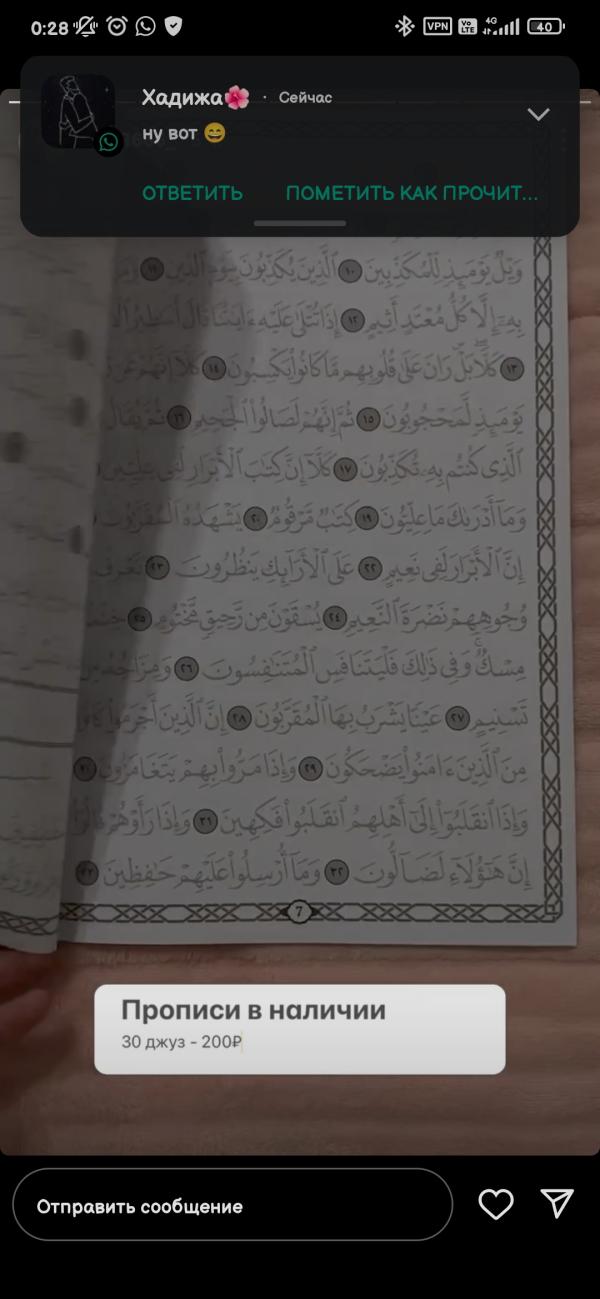 0:28
VPN
Vo LTE
4G
40
Хадижа🌺 · Сейчас
ну вот 😄
ОТВЕТИТЬ ПОМЕТИТЬ КАК ПРОЧИТ...
وَيْلٌ يَوْمَئِذٍ لِّلْمُكَذِّبِينَ ١٠ ٱلَّذِينَ يُكَذِّبُونَ بِيَوْمِ ٱلدِّينِ ١١ وَمَا
بِهِۦٓ إِلَّا كُلُّ مُعْتَدٍ أَثِيمٍ ١٢ إِذَا تُتْلَىٰ عَلَيْهِ ءَايَٰتُنَا قَالَ أَسَٰطِيرُ
١٣ كَلَّا ۖ بَلْ ۜ رَانَ عَلَىٰ قُلُوبِهِم مَّا كَانُوا۟ يَكْسِبُونَ ١٤ كَلَّآ إِنَّهُمْ عَن
يَوْمَئِذٍ لَّمَحْجُوبُونَ ١٥ ثُمَّ إِنَّهُمْ لَصَالُوا۟ ٱلْجَحِيمِ ١٦ ثُمَّ يُقَالُ
ٱلَّذِى كُنتُم بِهِۦ تُكَذِّبُونَ ١٧ كَلَّآ إِنَّ كِتَٰبَ ٱلْأَبْرَارِ لَفِى عِلِّيِّينَ
وَمَآ أَدْرَىٰكَ مَا عِلِّيُّونَ ١٩ كِتَٰبٌ مَّرْقُومٌ ٢٠ يَشْهَدُهُ ٱلْمُقَرَّبُونَ
إِنَّ ٱلْأَبْرَارَ لَفِى نَعِيمٍ ٢٢ عَلَى ٱلْأَرَآئِكِ يَنظُرُونَ ٢٣ تَعْرِفُ
وُجُوهِهِمْ نَضْرَةَ ٱلنَّعِيمِ ٢٤ يُسْقَوْنَ مِن رَّحِيقٍ مَّخْتُومٍ ٢٥
مِسْكٌ ۚ وَفِى ذَٰلِكَ فَلْيَتَنَافَسِ ٱلْمُتَنَٰفِسُونَ ٢٦ وَمِزَاجُهُۥ مِن
تَسْنِيمٍ ٢٧ عَيْنًا يَشْرَبُ بِهَا ٱلْمُقَرَّبُونَ ٢٨ إِنَّ ٱلَّذِينَ أَجْرَمُوا۟
مِنَ ٱلَّذِينَ ءَامَنُوا۟ يَضْحَكُونَ ٢٩ وَإِذَا مَرُّوا۟ بِهِمْ يَتَغَامَزُونَ ٣٠
وَإِذَا ٱنقَلَبُوٓا۟ إِلَىٰٓ أَهْلِهِمُ ٱنقَلَبُوا۟ فَكِهِينَ ٣١ وَإِذَا رَأَوْهُمْ قَالُوٓا۟
إِنَّ هَٰٓؤُلَآءِ لَضَآلُّونَ ٣٢ وَمَآ أُرْسِلُوا۟ عَلَيْهِمْ حَٰفِظِينَ ٣٣
7
Прописи в наличии
30 джуз - 200₽
Отправить сообщение